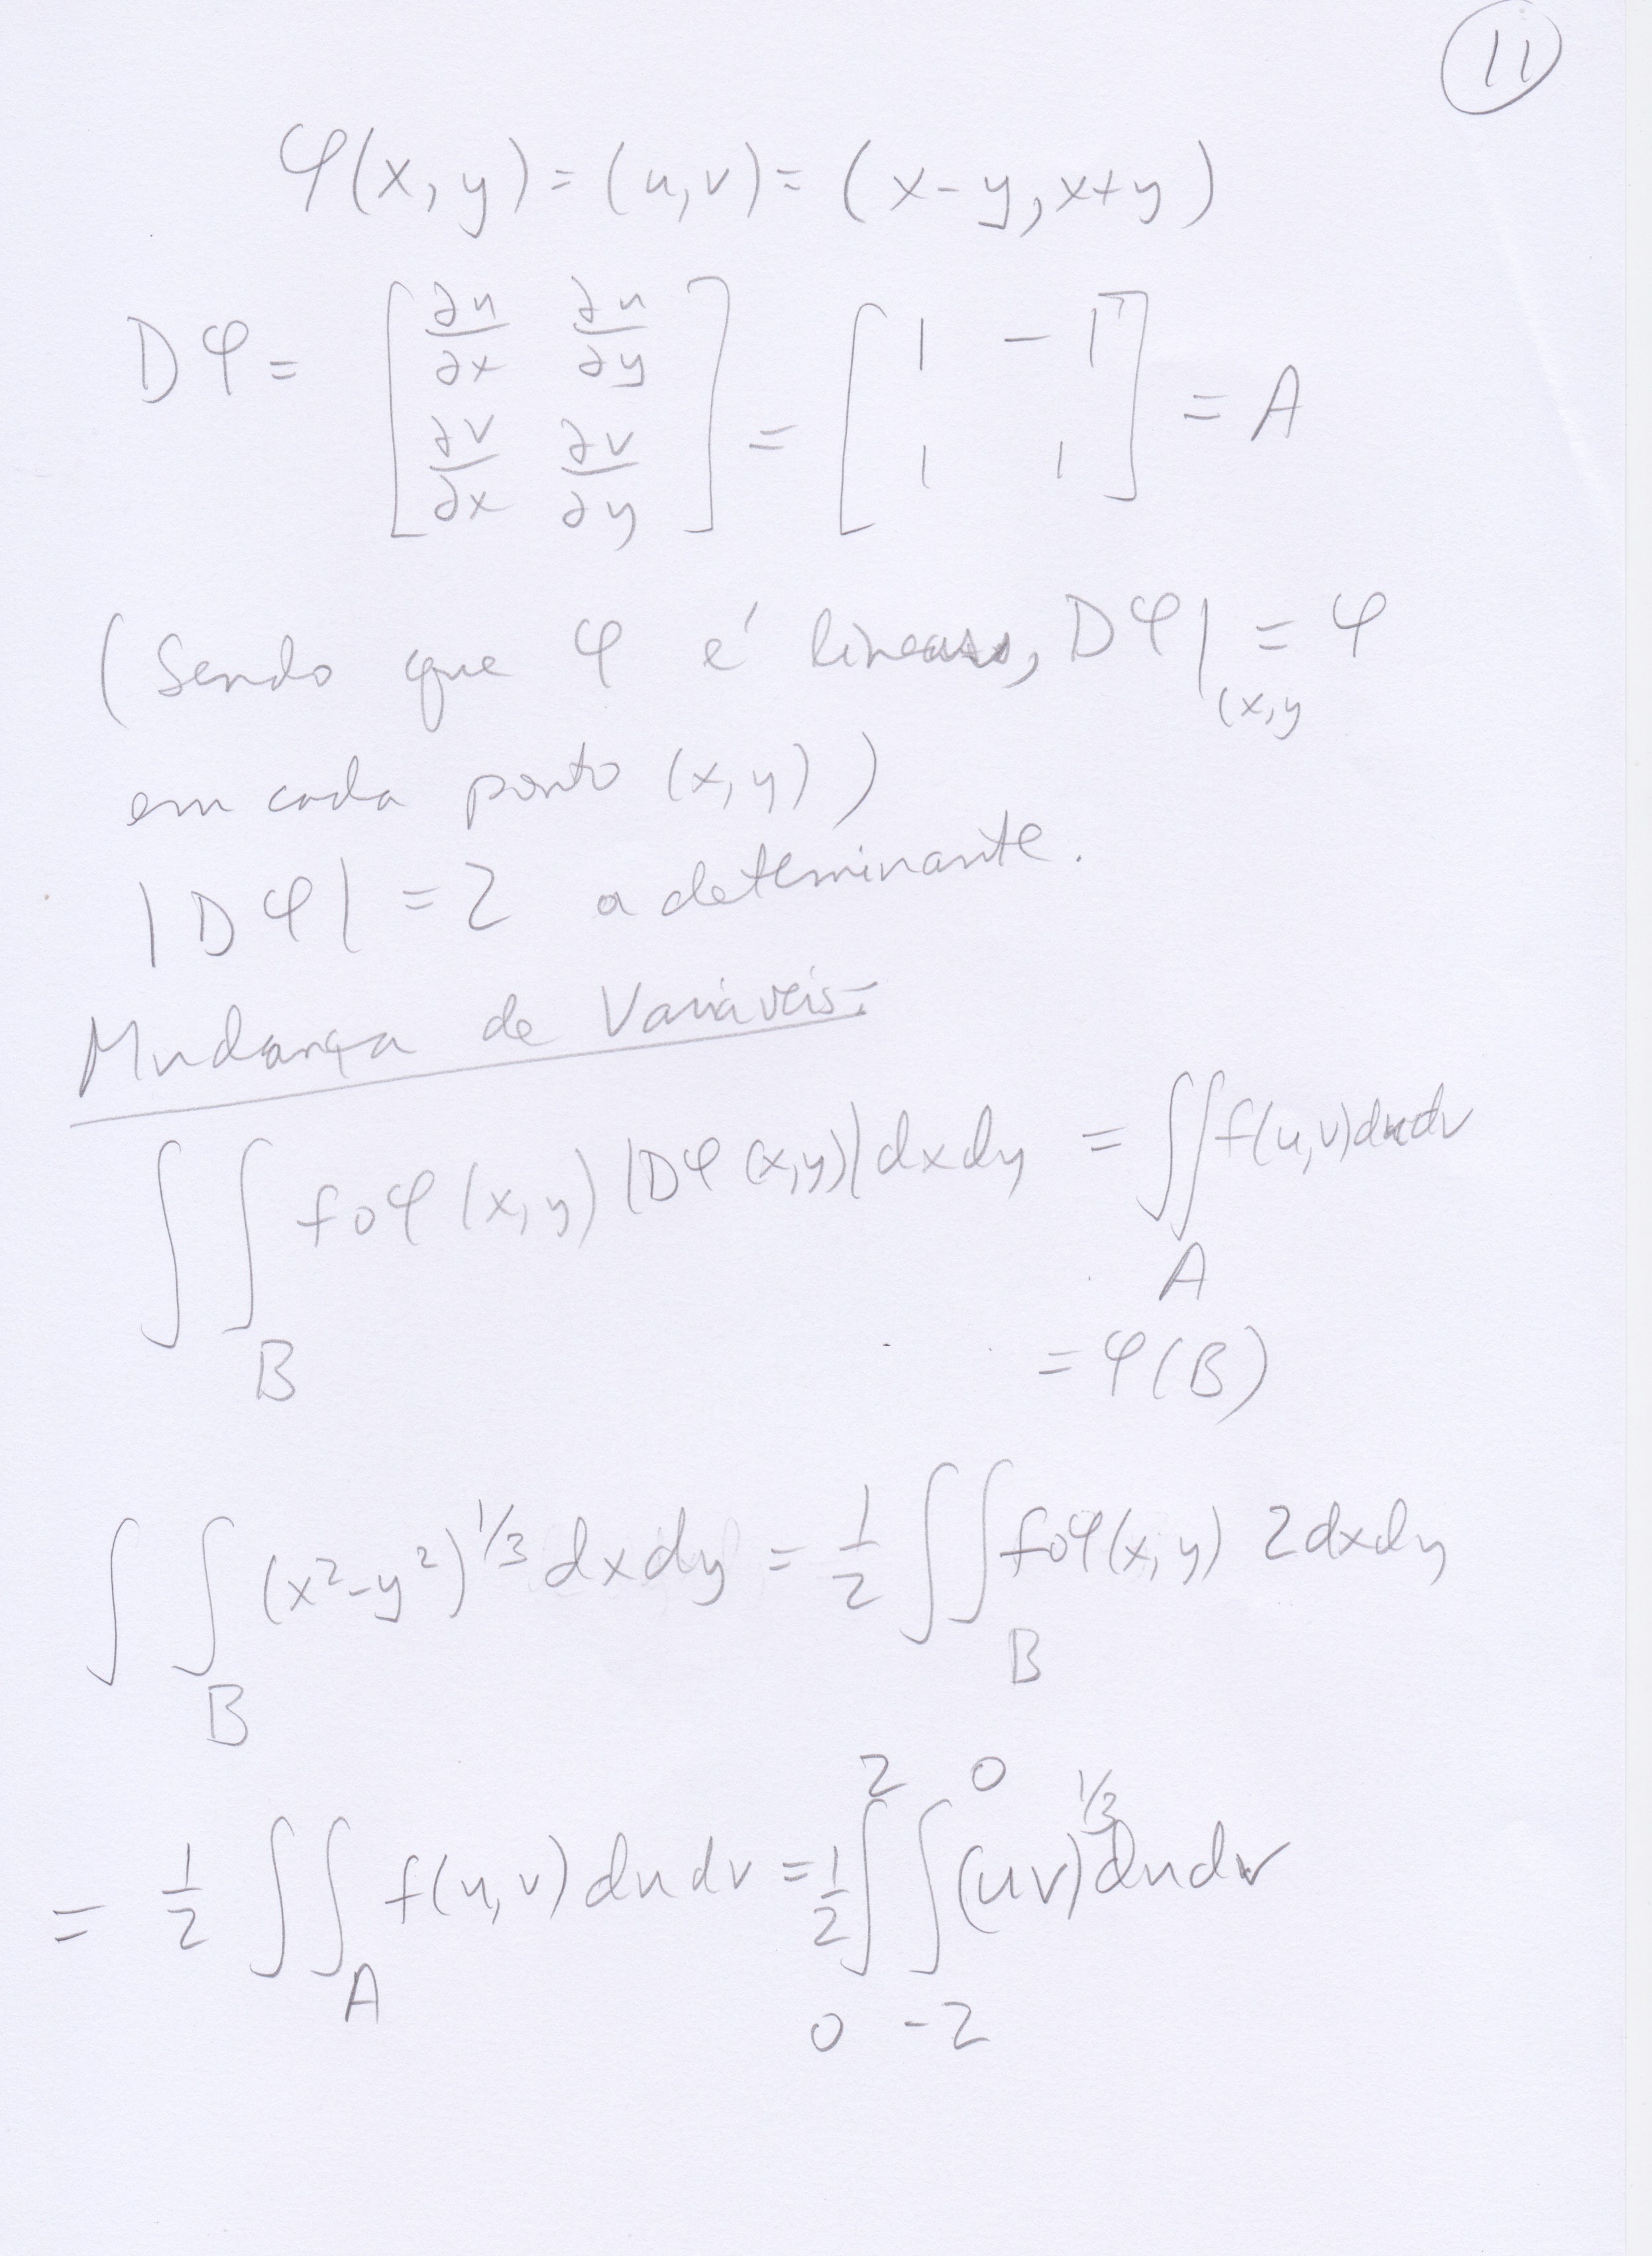 11
φ(x, y) = (u, v) = (x - y, x + y)
Dφ = [∂u/∂x ∂u/∂y; ∂v/∂x ∂v/∂y] = [1 -1; 1 1] = A
(Sendo que φ é linear, Dφ|(x,y = φ
em cada ponto (x, y))
|Dφ| = 2 o determinante.
Mudança de Variáveis:
∫∫_B f∘φ(x, y) |Dφ(x,y)| dxdy = ∫∫_A f(u,v)dudv
= φ(B)
∫∫_B (x²-y²)^1/3 dxdy = 1/2 ∫∫_B f∘φ(x, y) 2dxdy
= 1/2 ∫∫_A f(u, v) dudv = 1/2 ∫_0^2 ∫_-2^0 (uv)^1/3 dudv